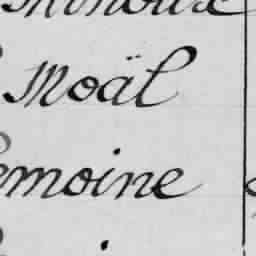 Moäl
emoine